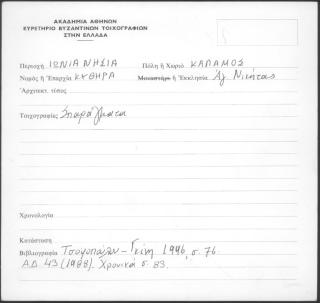 ΑΚΑΔΗΜΙΑ ΑΘΗΝΩΝ
ΕΥΡΕΤΗΡΙΟ ΒΥΖΑΝΤΙΝΩΝ ΤΟΙΧΟΓΡΑΦΙΩΝ
ΣΤΗΝ ΕΛΛΑΔΑ
Περιοχή ΙΩΝΙΑ ΝΗΣΙΑ Πόλη ἤ Χωριό ΚΑΛΑΜΟΣ
Νομός ἤ Ἐπαρχία ΚΥΘΗΡΑ Μοναστήρι ἤ Ἐκκλησία Ἁγ. Νικήτας
Ἀρχιτεκτ. τύπος
Τοιχογραφίες Σπαράγματα
Χρονολογία
Κατάσταση
Βιβλιογραφία 1996, σ. 76.
Α.Δ. 43 (1988). Χρονικά σ. 83.